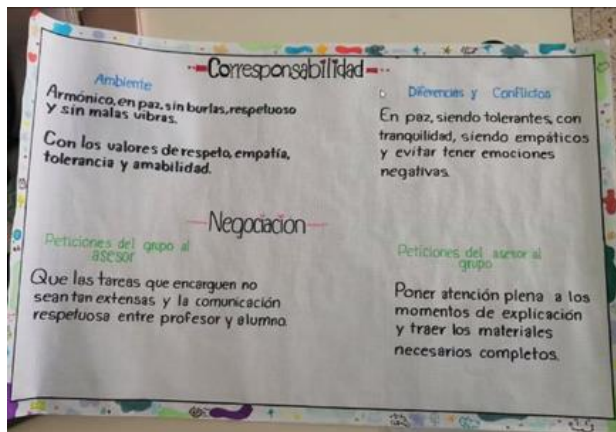 Corresponsabilidad
Ambiente
Armónico, en paz, sin burlas, respetuoso
y sin malas vibras.
Con los valores de respeto, empatía,
tolerancia y amabilidad.
Diferencias y Conflictos
En paz, siendo tolerantes, con
tranquilidad, siendo empáticos
y evitar tener emociones
negativas.
Negociación
Peticiones del grupo al
asesor
Que las tareas que encarguen no
sean tan extensas y la comunicación
respetuosa entre profesor y alumno.
Peticiones del asesor al
grupo
Poner atención plena a los
momentos de explicación
y traer los materiales
necesarios completos.